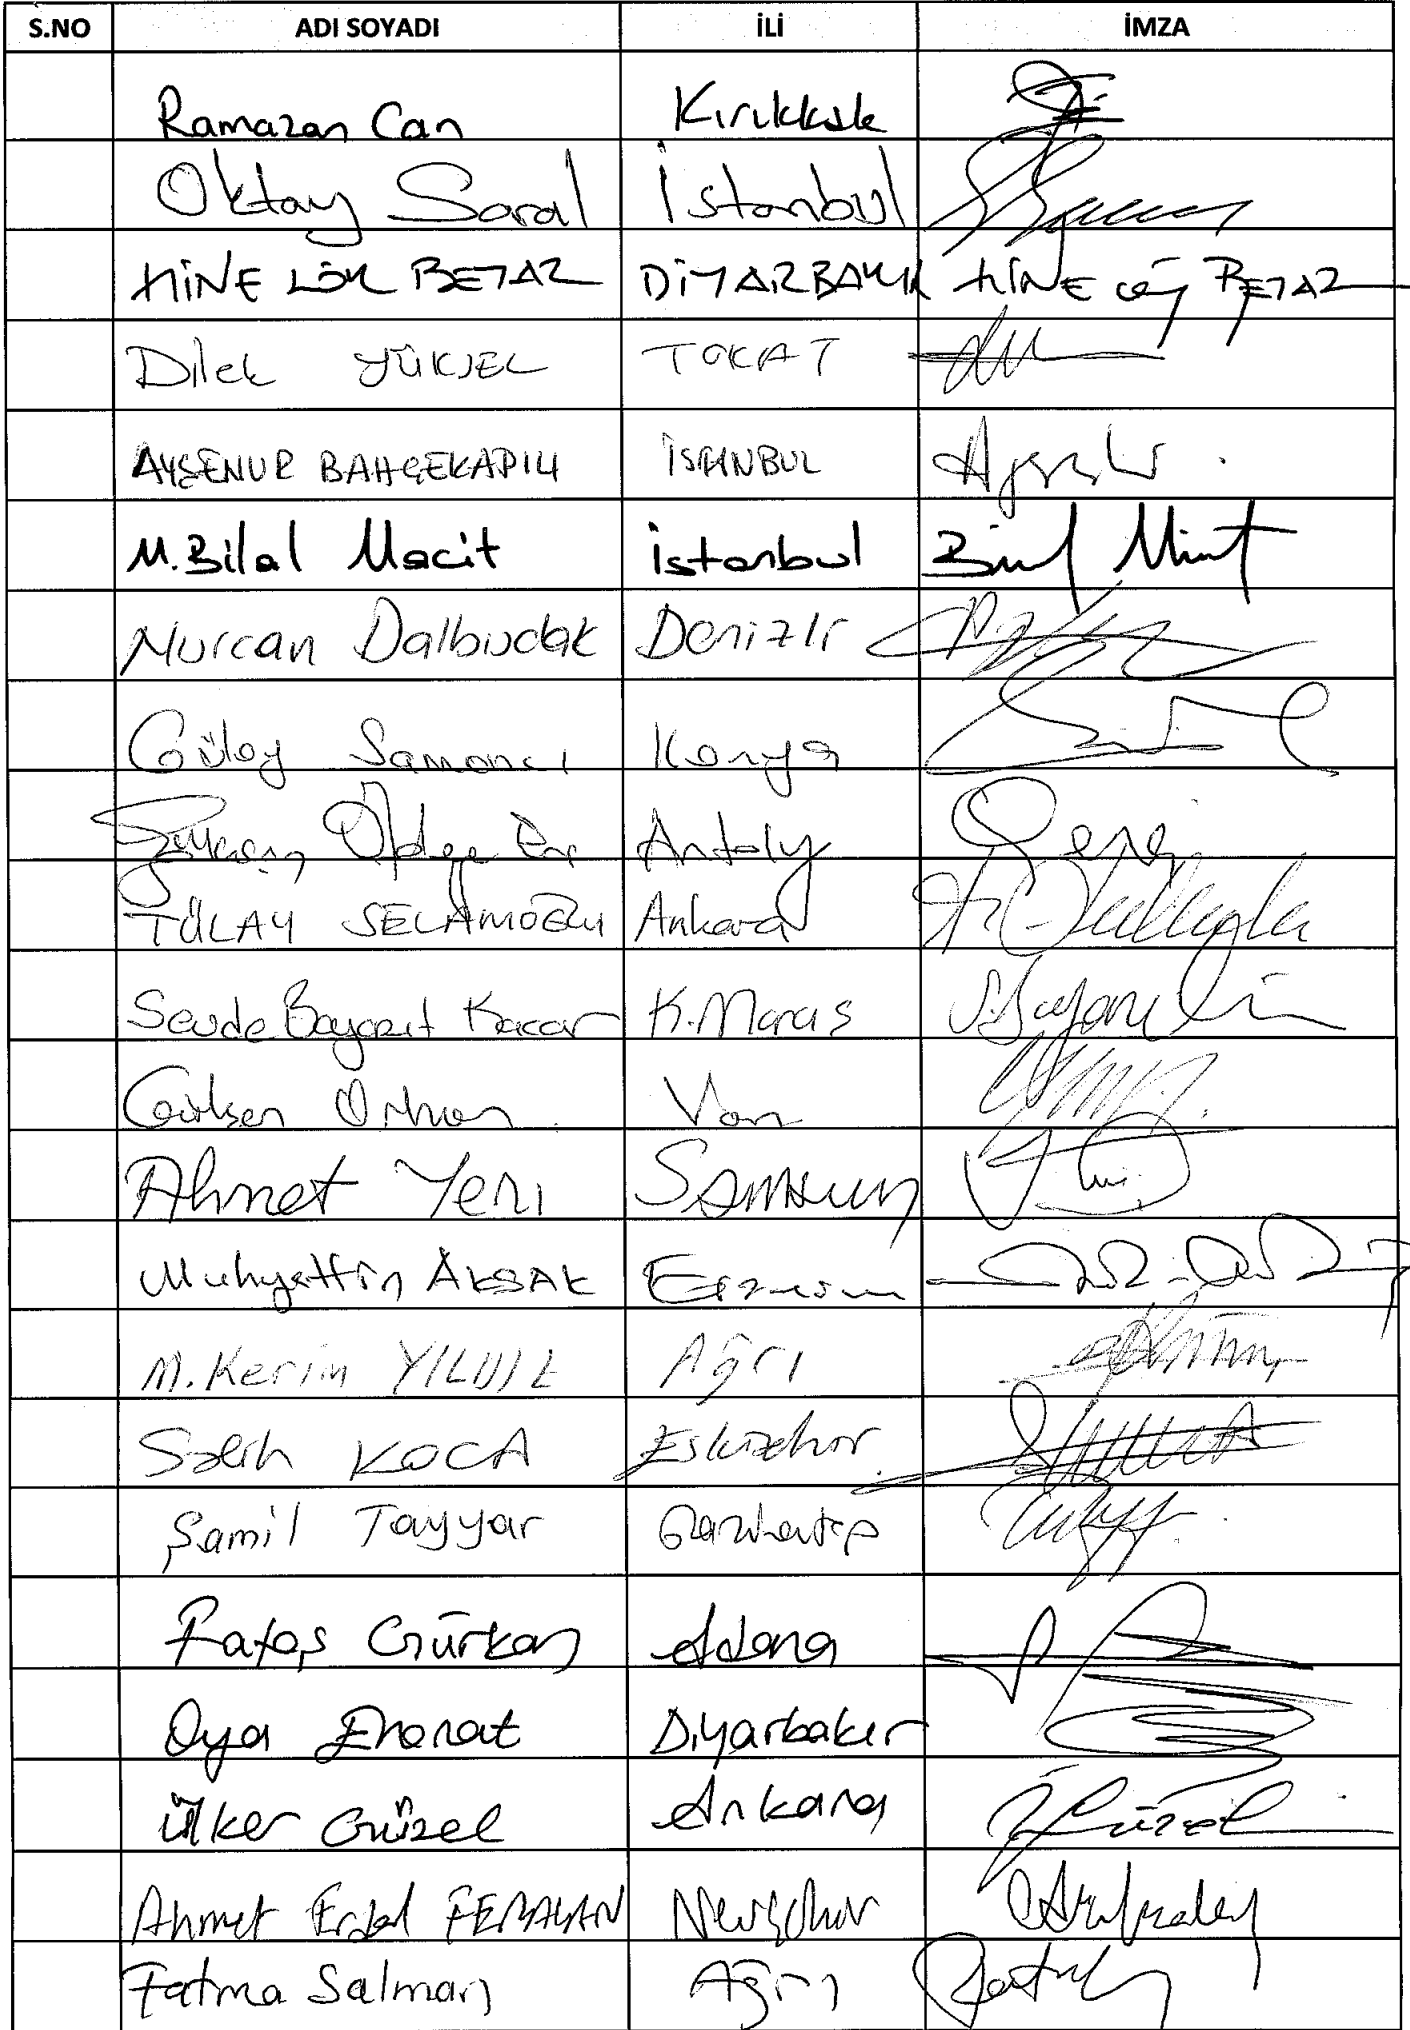 S.NO ADI SOYADI İLİ İMZA
Ramazan Can Kırıkkale
Oktay Saral İstanbul
MİNE LÖK BEYAZ DİYARBAKIR MİNE BEYAZ
Dilek YÜKSEL TOKAT
AYŞENUR BAHÇEKAPILI İSTANBUL
M.Bilal Macit İstanbul
Nurcan Dalbudak Denizli
Gülay Samancı Konya
Antalya
TÜLAY SELAMOĞLU Ankara
Sevde Bayazıt Kacar K.Maraş
Gülşen Orhan Van
Ahmet Yeni Samsun
Muhyettin AKSAK Erzurum
M.Kerim YILDIZ Ağrı
Salih KOCA Eskişehir
Şamil Tayyar Gaziantep
Fatoş Gürkan Adana
Oya Eronat Diyarbakır
Ülker Güzel Ankara
Ahmet Erdal FERALAN Nevşehir
Fatma Salman Ağrı